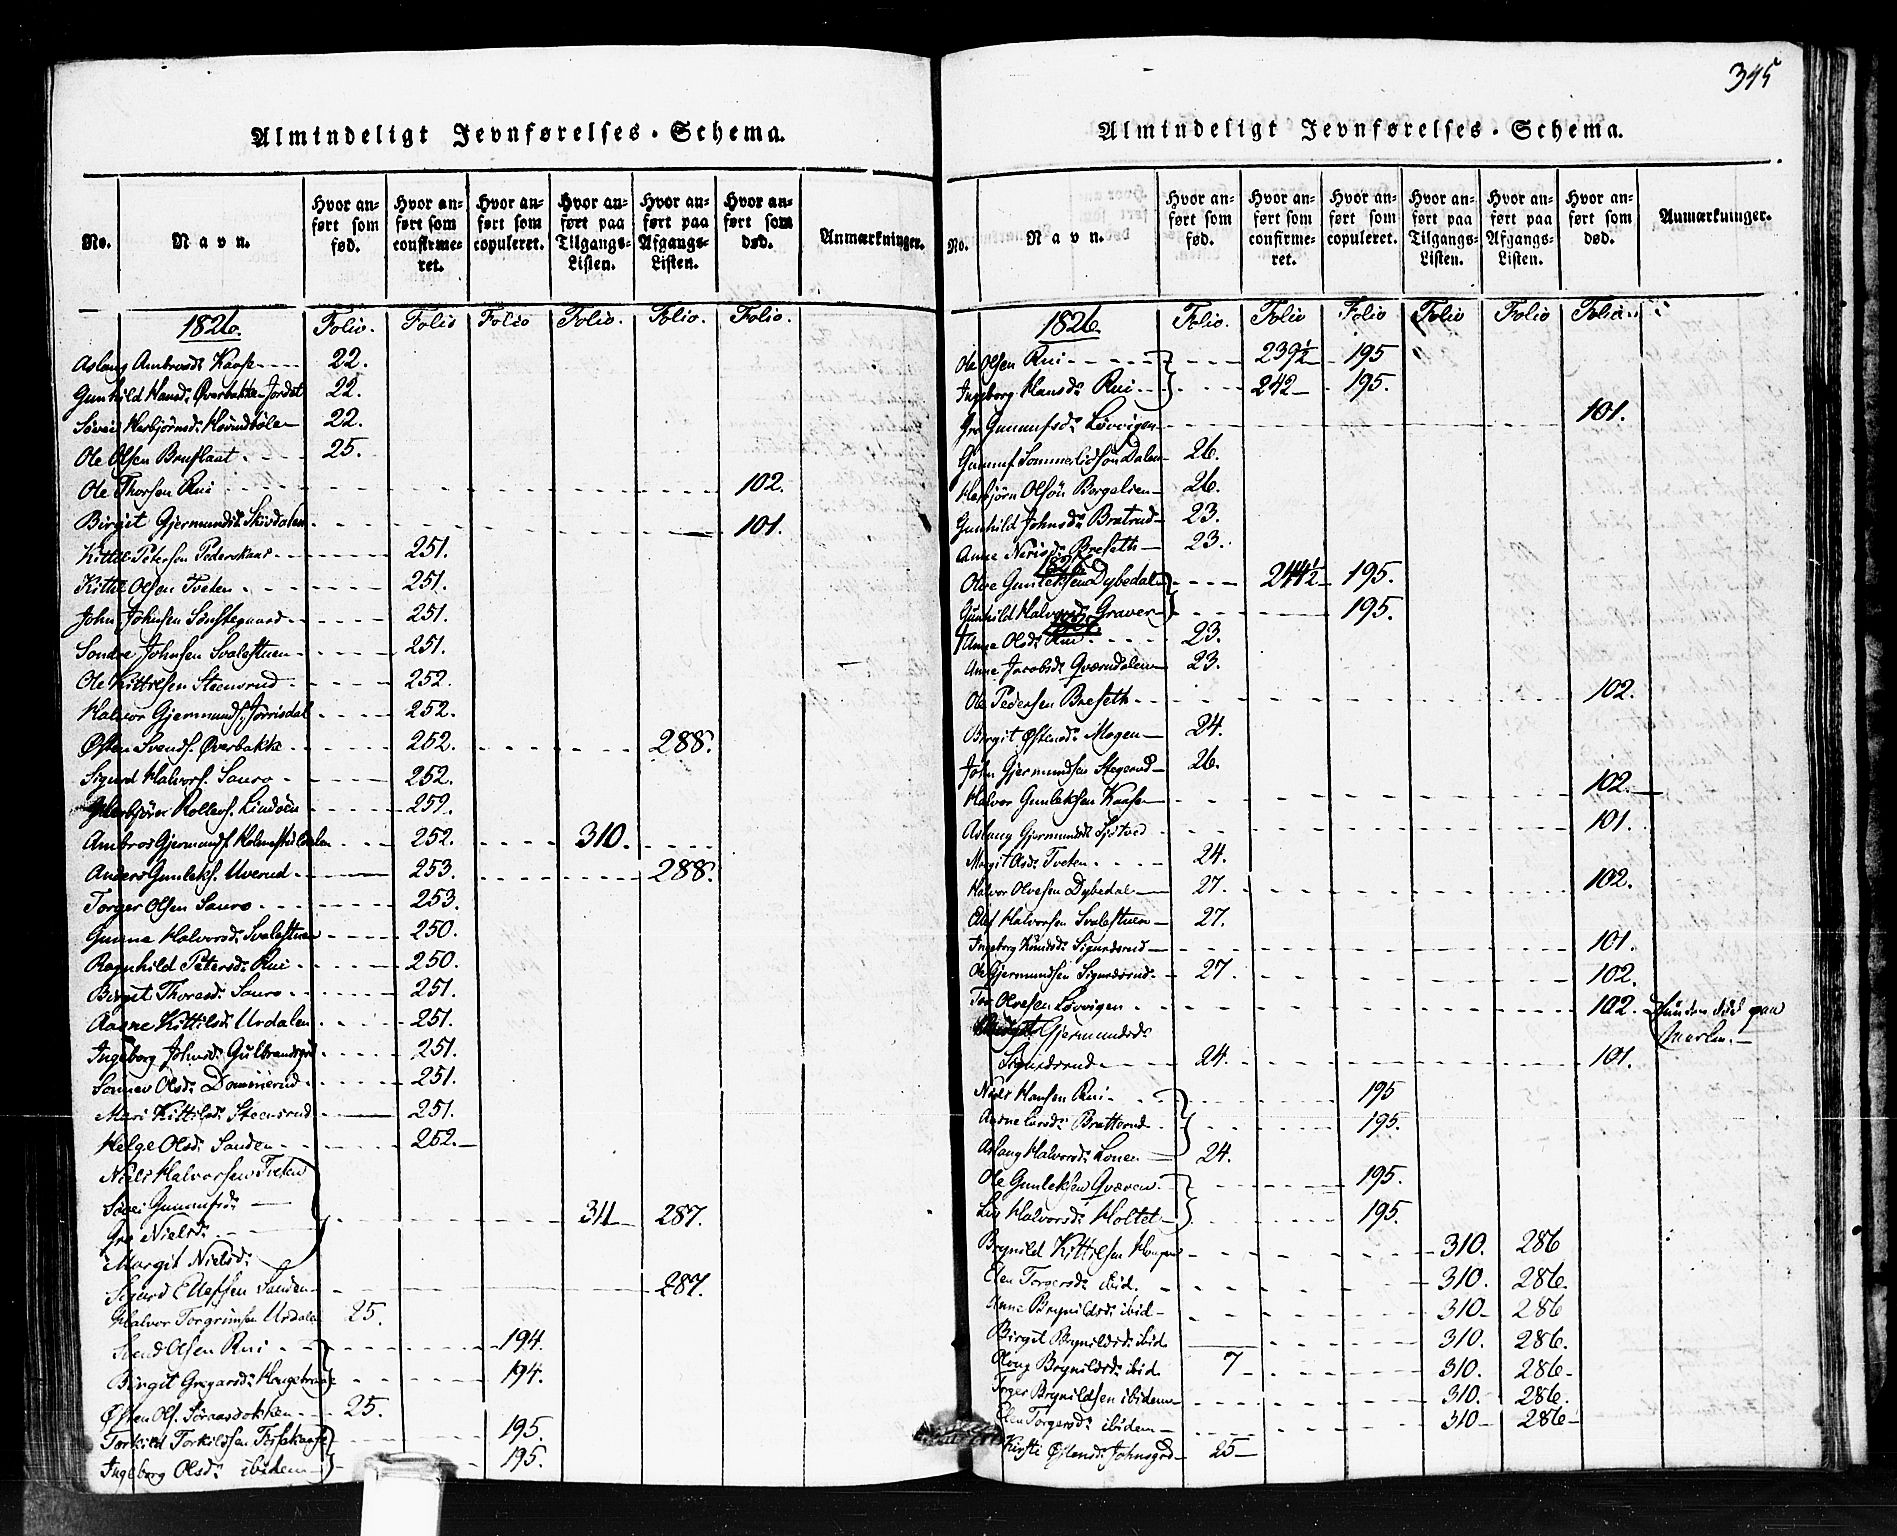 Almindeligt Jevnførelses-Schema.
No.
Navn.
Hvor an-
ført som
fød.
Hvor an-
ført som
confirme-
ret.
Hvor an-
ført som
copuleret.
Hvor an-
ført paa
Tilgangs-
Listen.
Hvor an-
ført paa
Afgangs-
Listen.
Hvor an-
ført som
død.
Anmærkninger.
1826. Folio. Folio Folio Folio. Folio. Folio.
Aslaug Ambrosd: Kaase 22.
Gunhild Hansd: Øverbakka-Jordet 22.
Herbjørnsd: 22.
Ole Olsen Bruflaat 25.
Ole Thorsen Rui 102.
Birgit Gjermundsd: Skiísdalen 101.
Kittil Petersen Pederskaas 251.
Kittil Olsen Tveten 251.
John Johnsen Sønstegaard 251.
Sondre Johnsen Svalestuen 251.
Ole Kittilsen Steensrud 252.
Halvor Gjermunds. Jørrisdal 252.
Østen Svends. Øverbakka 252. 288.
Sigurd Halvors. Sauro 252.
Herbjørn Rollevs. Lindøen 252.
Ambros Gjermunds. Holmestuldalen 252. 310.
Anders Gunleks. Uverud 253. 288.
Torger Olsen Sauro 253.
Gunne Halvorsd: Svalestuen 250.
Ragnhild Petersd: Rui 250.
Birgit Thoresd: Sauro 251.
Aagne Kittilsd: Urdalen 251.
Ingeborg Johnsd: Gulbrandsgrd 251.
Sonnev Olsd: 251.
Mari Kittilsd: Steensrud 251.
Helge Olsd: Sanden 252.
Niels Halvorsen Tveten
Gunnufsd:
Gro Nielsd: 311 287.
Margit Nielsd:
Sigurd Ellefsen Sanden 287.
Halvor Torgrimsen Urdalen 25.
Svend Olsen Rui 194.
Birgit Gregarsd: 194.
Østen Ols. Søraasdokken 25.
Torkild Torkildsen 195.
Ingeborg Olsd: ibidem 195.
345
Almindeligt Jevnførelses-Schema.
No.
Navn.
Hvor an-
ført som
fød.
Hvor an-
ført som
confirme-
ret.
Hvor an-
ført som
copuleret.
Hvor an-
ført paa
Tilgangs-
Listen.
Hvor an-
ført paa
Afgangs-
Listen.
Hvor an-
ført som
død.
Anmærkninger.
1826. Folio. Folio Folio Folio Folio Folio
Ole Olsen Rui 239½ 195
Ingeborg Hansd: Rui 242 195.
Gro Gunnufsd: Løvvigen 101.
Gunnuf Sommerlidsøn Dalen 26.
Herbjørn Olsøn Borgelien 26.
Gunhild Johnsd: Bratrud 23.
Anne Nerisd: Breseth 23.
Olve Gunleksen Dybedal 244½ 195.
Gunhild Halvorsd: Graver 195.
Anne Olsd: Rui 23.
Anne Jacobsd: Qværndalen 23.
Ole Pedersen Breseth 102.
Birgit Østensd: Mogen 24.
John Gjermundsen Stegerud 26.
Halvor Gunleksen Kaase 102.
Aslaug Gjermundsd: 101.
Margit Olsd: Tveten 24.
Halvor Olvesen Dybedal 27. 102.
Halvorsen Svalestuen 27.
Ingeborg Knudsd: Sigurdsrud 101.
Ole Gjermundsen Sigurdsrud 27. 102.
Tov Olvesen Løvvigen 102. funden död paa
Gjermundsd: Marken.
Sigurdsrud 24. 101.
Niels Hansen Rui 195
Aagne Larsd: Bratterud 195.
Aslaug Halvorsd: Lonen 24.
Ole Gunleksen Qværen 195.
Liv Halvorsd: Holtet 195.
Brynild Kittilsen 310. 286
Elen Torgersd: ibid. 310. 286.
Anne Brynildsd: ibid 310 286
Birgit Brynildsd: ibid 310. 286.
Aslaug Brynildsd: ibid. 7 310. 286
Torger Brynildsen ibidem 310. 286.
Elen Torgersd: ibidem 310 286
Kirsti Østensd: Johnsgrd 25